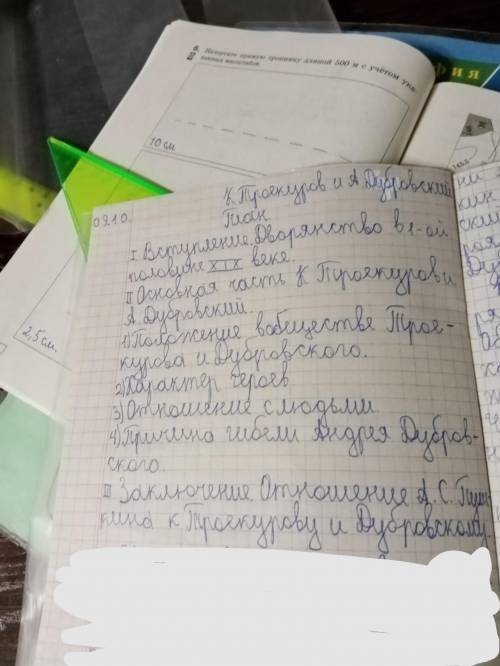 6. Начертите прямую тропинку длиной 500 м с учётом ука-
данных масштабов.
10 см
2,5 см.
фия
К. Троекуров и А. Дубровский
09.10. План
I Вступление. Дворянство в 1-ой
половине XIX веке.
II Основная часть К Троекуров и
А Дубровский.
1) Положение вобществе Трое-
курова и Дубровского.
2) Характер героев
3) Отношение с людьми
4) Причина гибели Андрея Дубров-
ского.
III Заключение Отношение А. С. Пуш-
кина к Троекурову и Дубровскому.